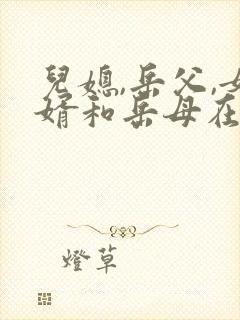 兒媳,岳父,女
婿和岳母在
燈草